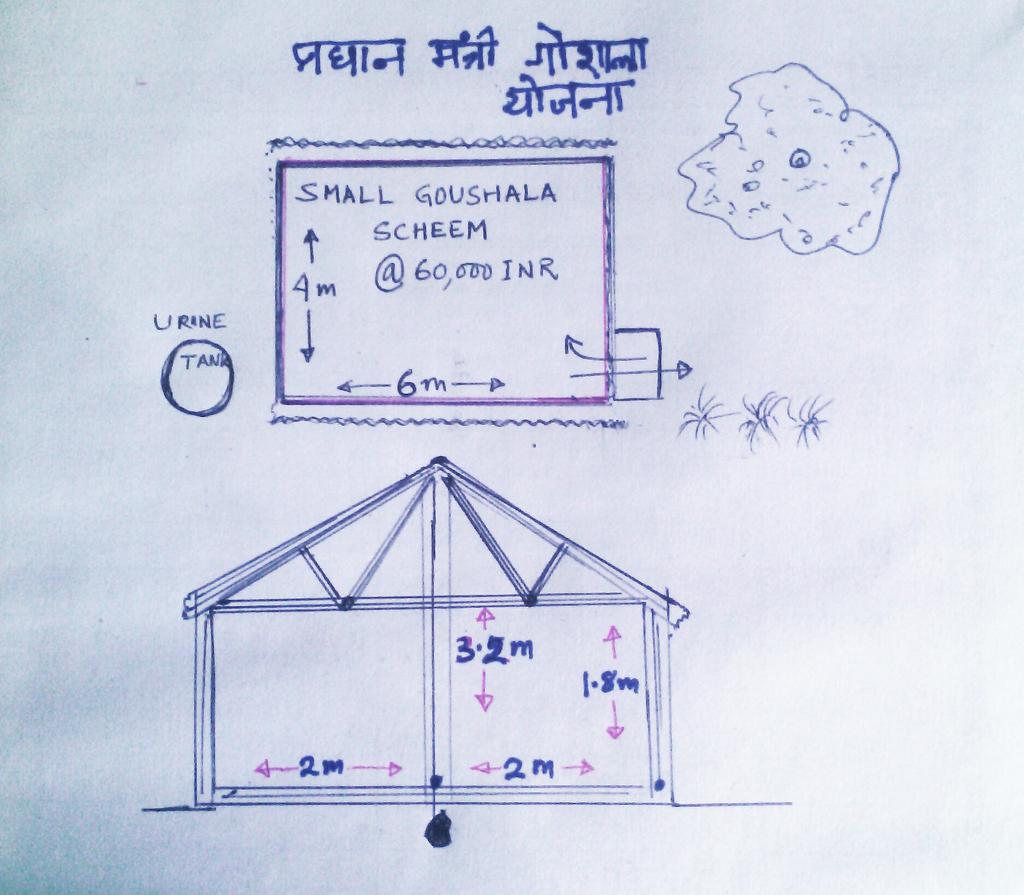 प्रधान मंत्री गोशाला
योजना
SMALL GOUSHALA
SCHEEM
@ 60,000 INR
4m
6m
URINE
TANK
3.2m
1.8m
2m
2m